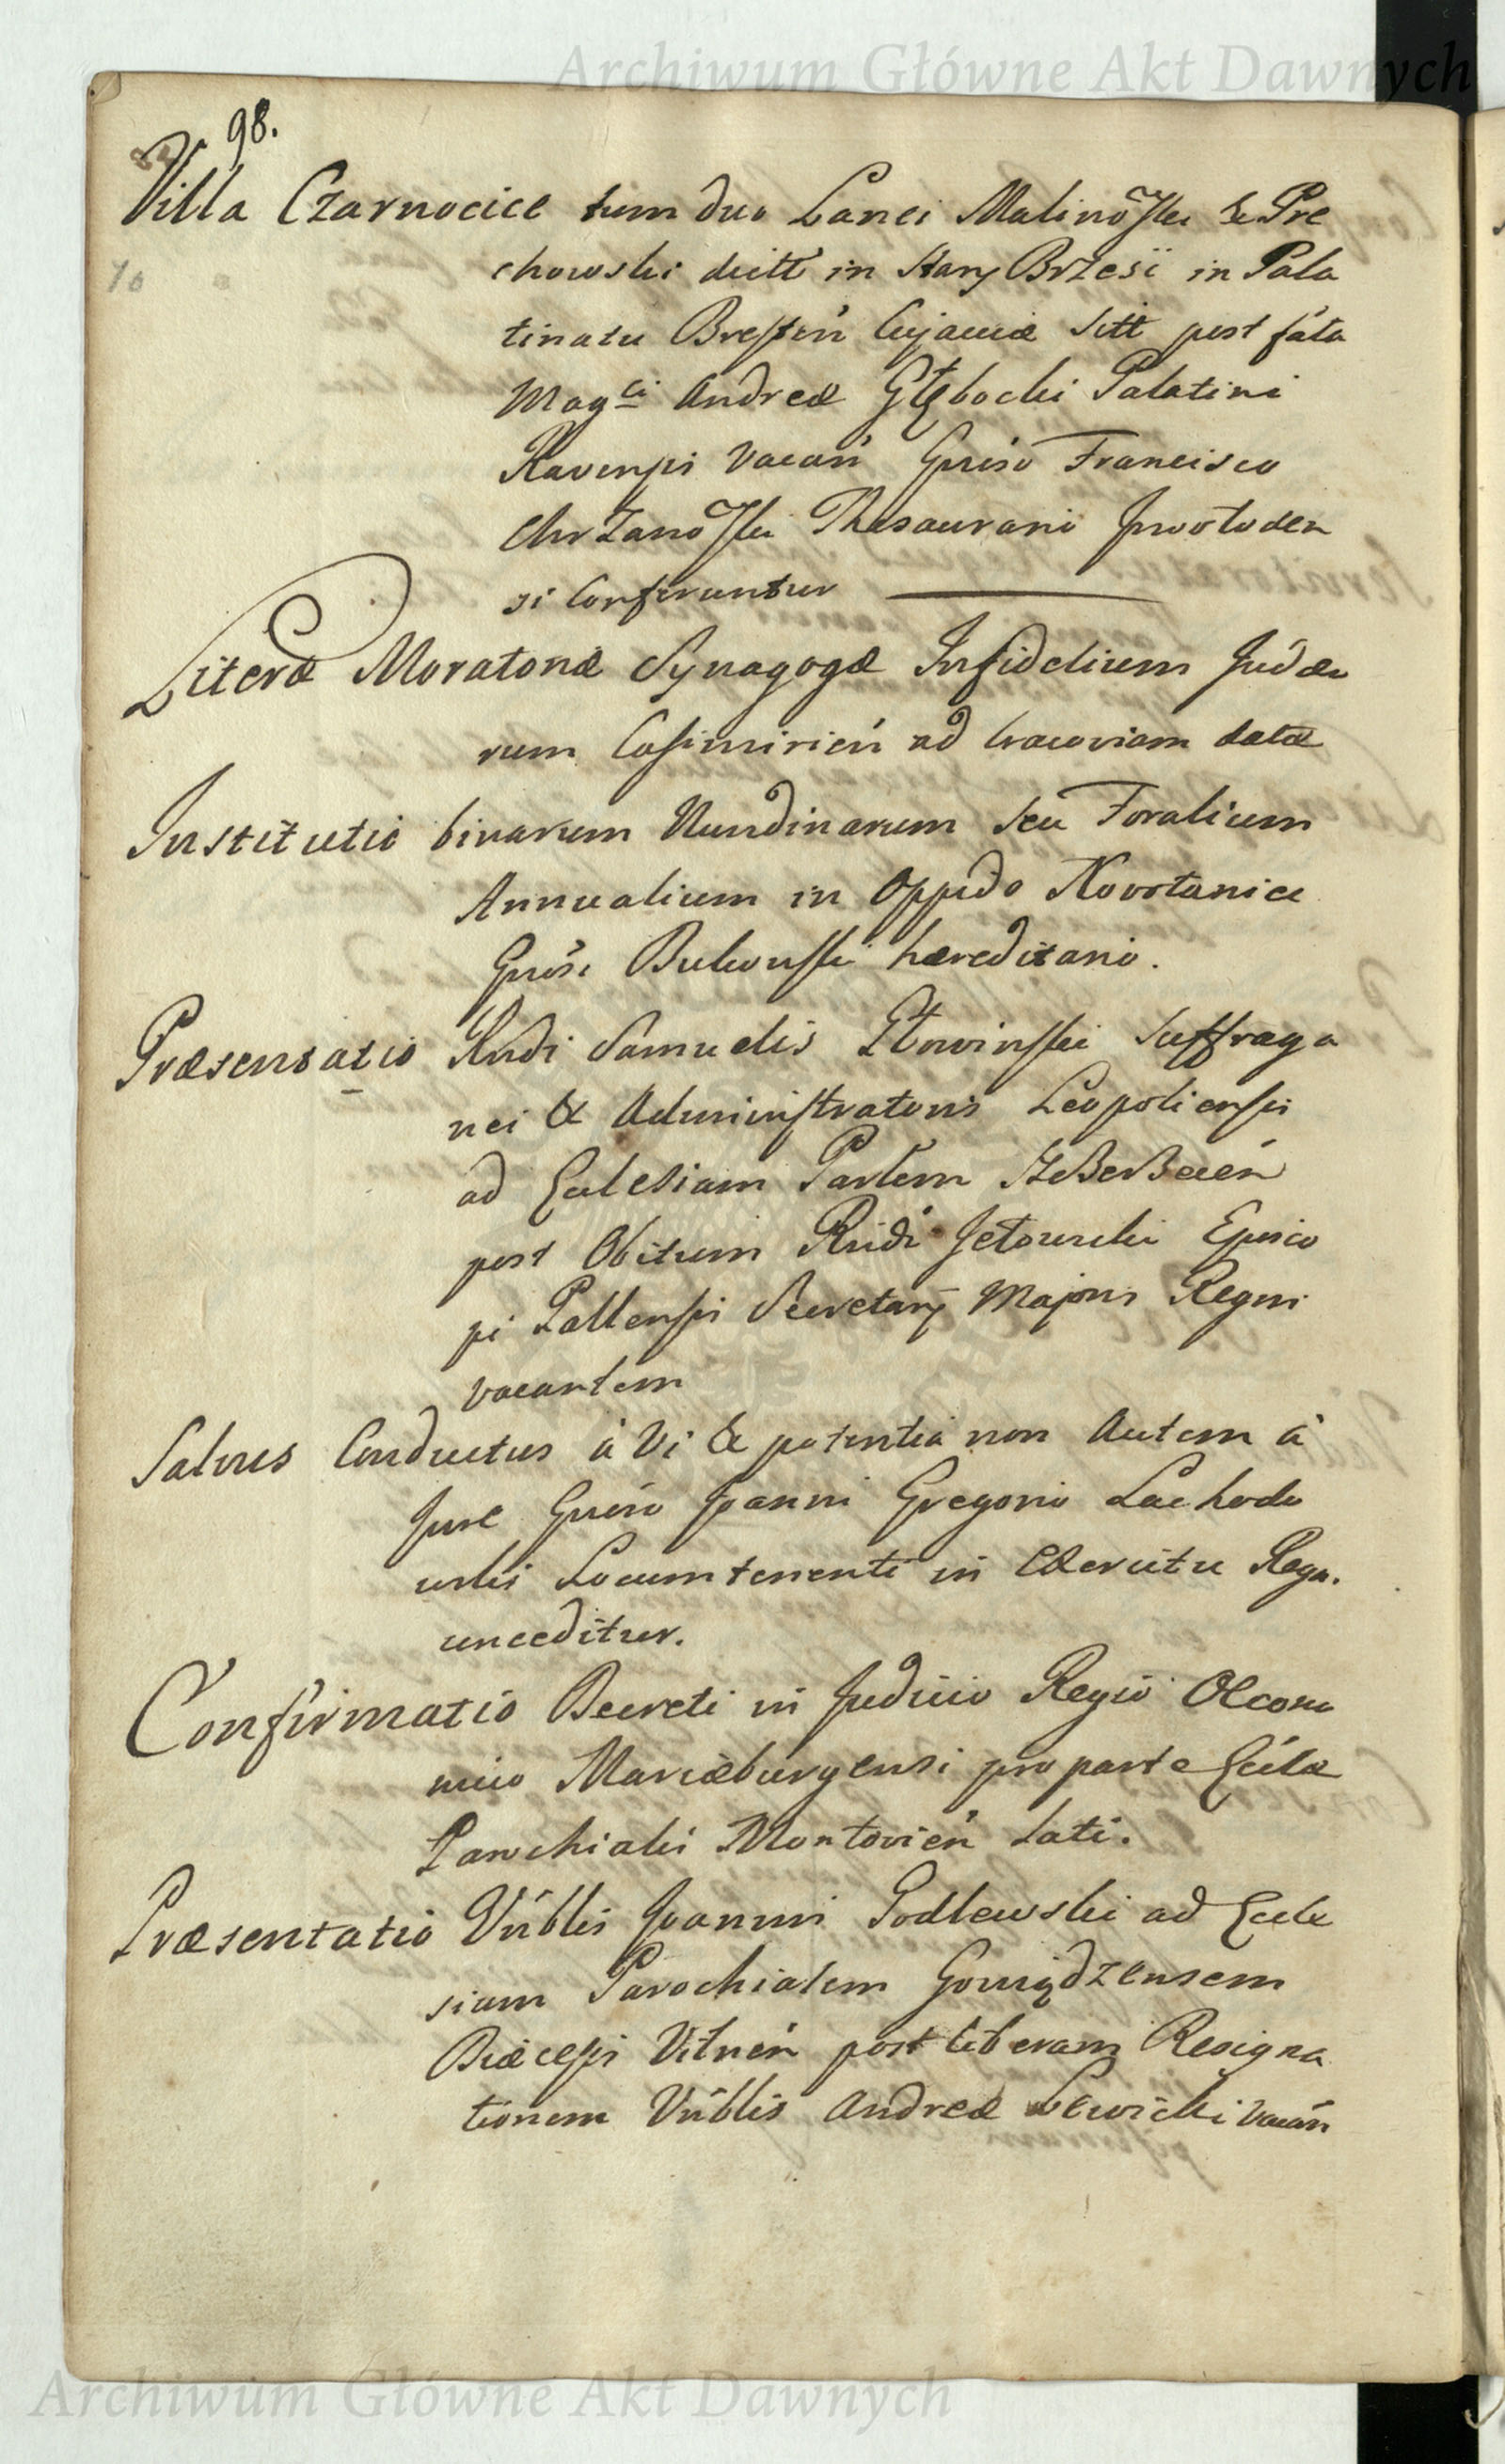 Archiwum Główne Akt Dawnych
98.
Villa Czarnocice tum duo Lanei Malinõski & Pre
chowski dictt in Stary Brzesï in Pala
tinatu Bresten̕ Cujaviæ sitt post fata
Magci Andreæ Głębocki Palatini
Ravensis vacan̕ Gnrso Francisco
Chrzanõski Thesaurario
si Conferuntur
Literæ Moratoriæ Synagogæ Infidelium Judæo
rum Casimirien̕ ad Cracoviam datæ
Institutio binarum Nundinarum seu Foralium
Annualium in Oppido Novotaniec
Gnrosi Bukowski hæreditario.
Præsentatio Rndi Samuelis Głowinski Suffraga
nei & Administratoris Leopoliensis
ad Ecclesiam Parlem
post Obitum Rndi Jełowicki Episco
pi Secretarÿ Majoris Regni
vacantem
Salvus Conductus à Vi & potentia non Autem à
Jure Gnroso Joanni Gregorio Lachodo
wski Locumtenenti in Exercitu Regn.
conceditur.
Confirmatio Decreti in Judicio Regio Oecono
mico Mariæburgensi pro parte Eccлæ
Parochialis Montovien̕ Lati.
Præsentatio Vnblis Joannis Godlewski ad Eccle
siam Parochialem Goniądzensem
Diæcesis Vilnen̕ post liberam Resigna
tionem Vnblis Andreæ Lewicki vacan̕
Archiwum Główne Akt Dawnych